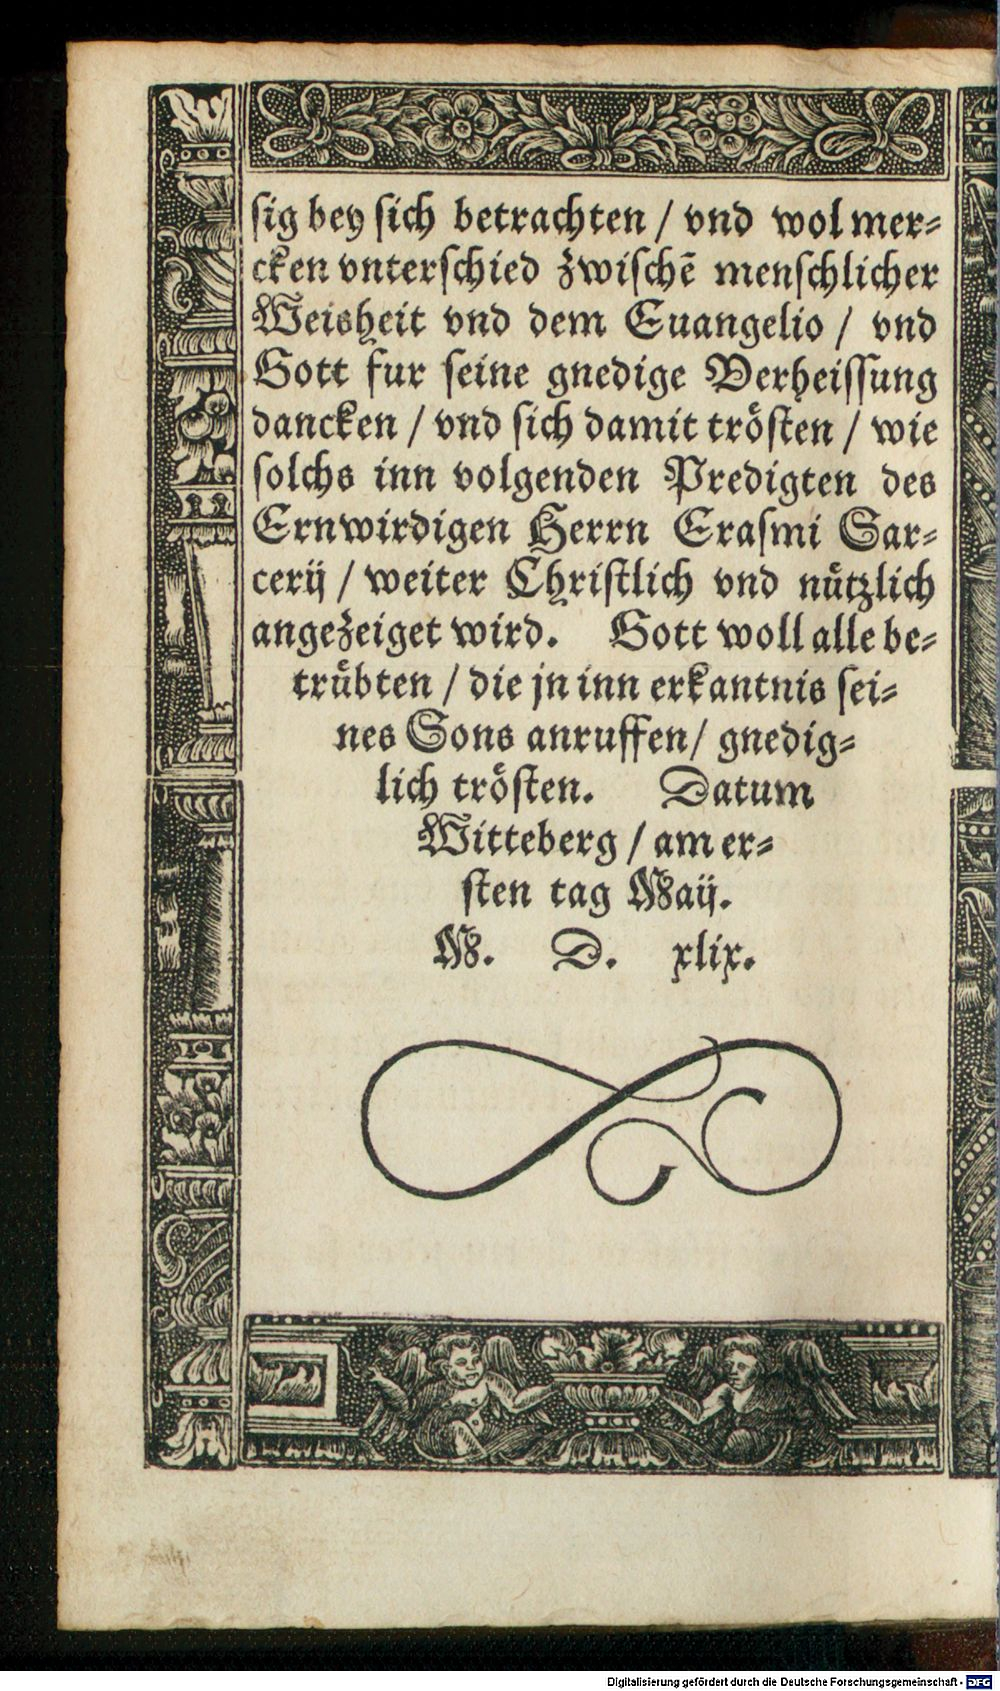 sig bey sich betrachten / vnd wol mer-
cken vnterschied zwischē menschlicher
Weisheit vnd dem Euangelio / vnd
Gott fur seine gnedige Verheissung
dancken / vnd sich damit trösten / wie
solchs inn volgenden Predigten des
Ernwirdigen Herrn Erasmi Sar-
cerij / weiter Christlich vnd nützlich
angezeiget wird. Gott woll alle be-
trübten / die jn inn erkantnis sei-
nes Sons anruffen / gnedig-
lich trösten. Datum
Witteberg / am er-
sten tag Maij.
M. D. xlix.
Digitalisierung gefördert durch die Deutsche Forschungsgemeinschaft - DFG